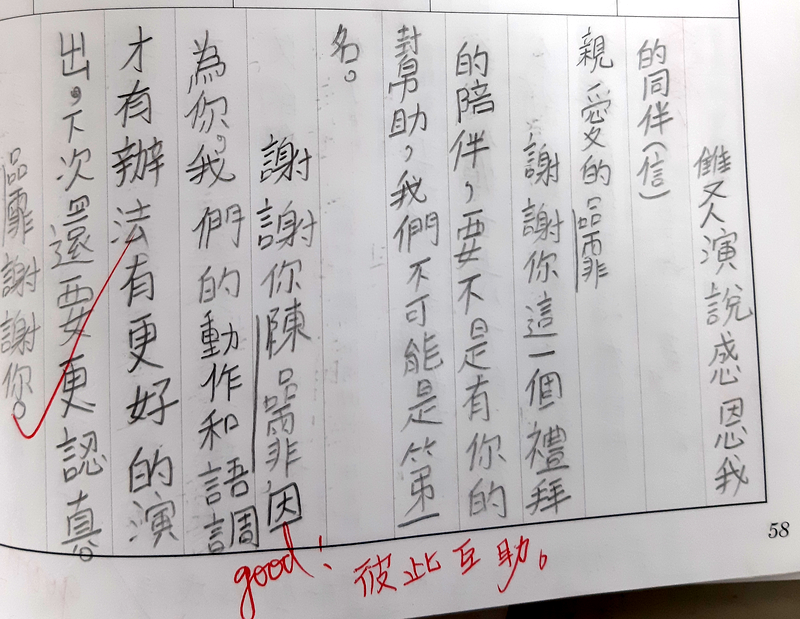 雙人演說感恩我
的同伴(信)
親愛的品霏
謝謝你這一個禮拜
的陪伴,要不是有你的
幫助,我們不可能是第一
名。
謝謝你陳品霏,因
為你。我們的動作和語調
才有辦法有更好的演
出,下次還要更認真。
品霏謝謝你。
good! 彼此互助。
58